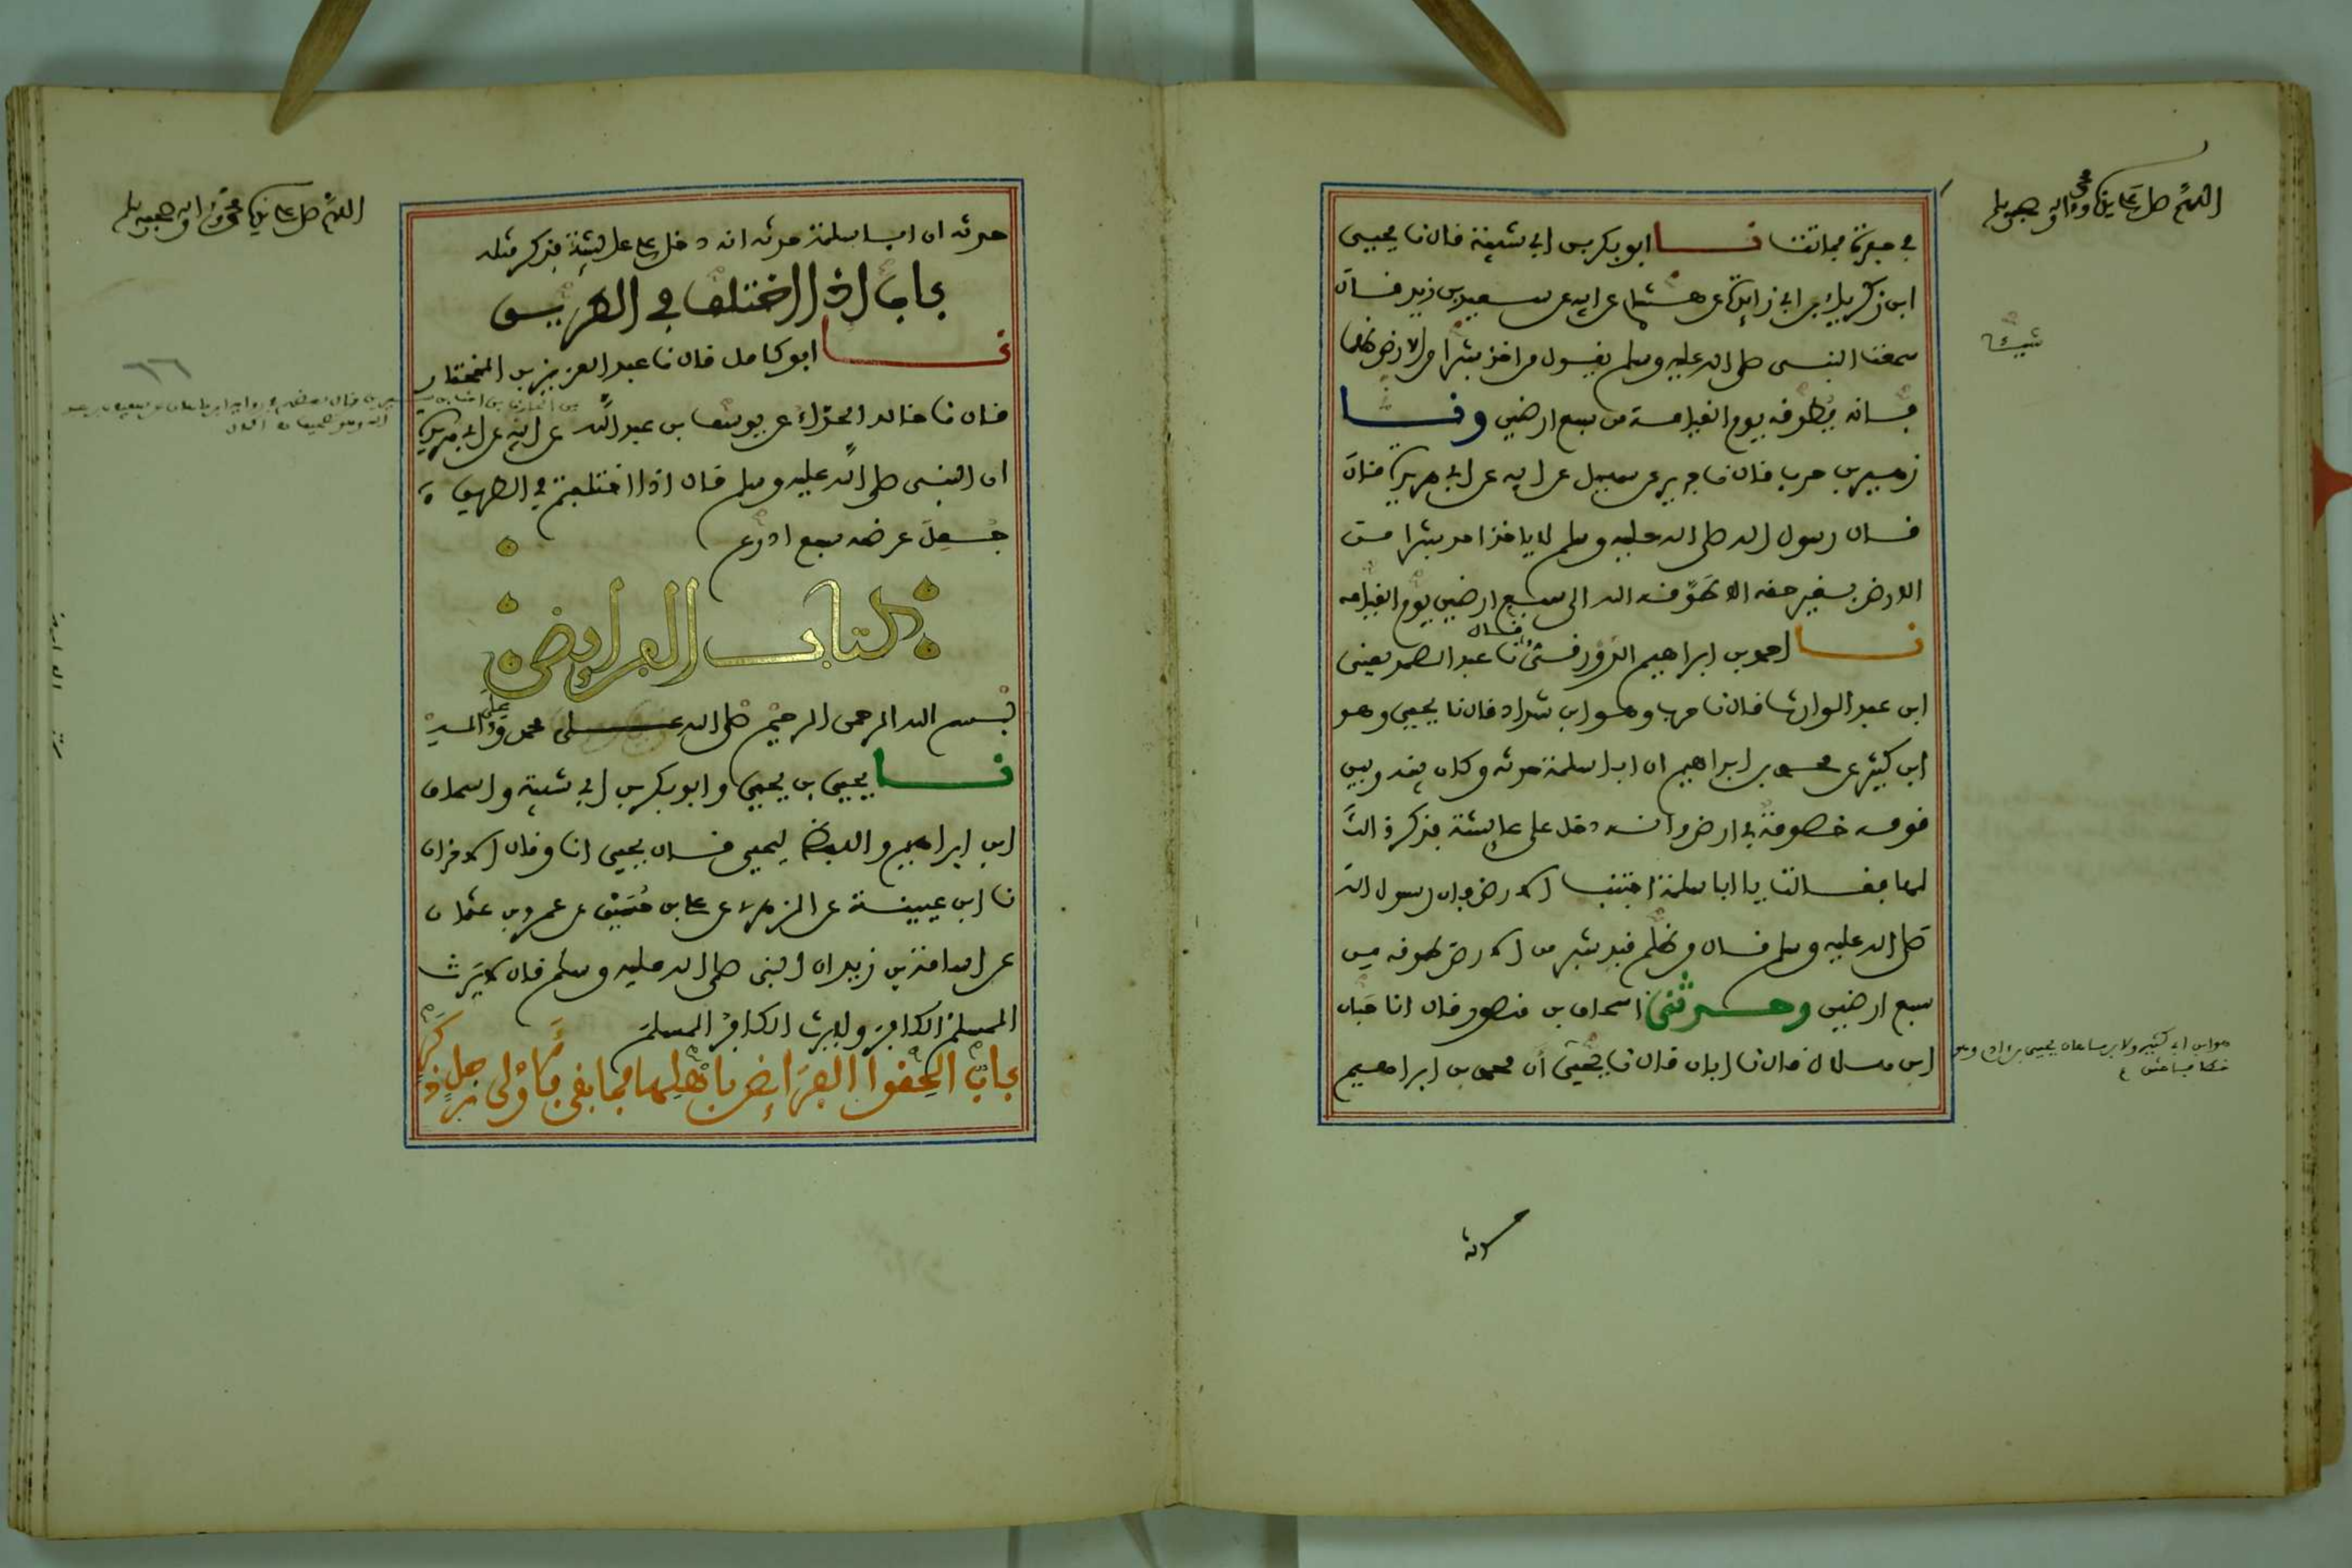 اللهم صل على نبينا ومولانا محمد وآله وصحبه وسلم
في حفرتها فماتت نا ابو بكر بن ابي شيبة قال نا يحيى
ابن زكرياء بن ابي زايدة عن هشام عن ابيه عن سعيد بن زيد قال
سمعت النبي صلى الله عليه وسلم يقول من اخذ شبرا من الارض ظلما
شيئا
فانه يطوقه يوم القيامة من سبع ارضين ونا
زهير بن حرب قال نا جرير عن سهيل عن ابيه عن ابي هريرة قال
قال رسول الله صلى الله عليه وسلم لا ياخذ احد شبرا من
الارض بغير حقه الا طوقه الله الى سبع ارضين يوم القيامة
نا احمد بن ابراهيم الدورقي قال نا عبد الصمد يعني
ابن عبد الوارث قال نا حرب وهو ابن شداد قال نا يحيى وهو
ابن كثير عن محمد بن ابراهيم ان ابا سلمة حدثه وكان بينه وبين
قومه خصومة في ارض وانه دخل على عايشة فذكر ذلك
لها فقالت يا ابا سلمة اجتنب الارض فان رسول الله
صلى الله عليه وسلم قال من ظلم قيد شبر من الارض طوقه من
سبع ارضين وحدثني اسحاق بن منصور قال انا حبان
ابن هلال قال نا ابان قال نا يحيى ان محمد بن ابراهيم
هو ابن ابي كثير
حدثه
اللهم صل على نبينا ومولانا محمد وآله وصحبه وسلم
حدثه ان ابا سلمة حدثه انه دخل على عايشة فذكر مثله
باب اذا اختلف في الطريق
نا ابو كامل قال نا عبد العزيز بن المختار
قال نا خالد الحذاء عن يوسف بن عبد الله عن ابيه عن ابي هريرة
ان النبي صلى الله عليه وسلم قال اذا اختلفتم في الطريق
جعل عرضه سبع اذرع
كتاب الفرايض
بسم الله الرحمن الرحيم صلى الله على محمد وعلى اله
نا يحيى بن يحيى وابو بكر بن ابي شيبة واسحاق
ابن ابراهيم واللفظ ليحيى قال يحيى انا وقال الاخران
نا ابن عيينة عن الزهري عن علي بن حسين عن عمرو بن عثمان
عن اسامة بن زيد ان النبي صلى الله عليه وسلم قال لا يرث
المسلم الكافر ولا يرث الكافر المسلم
باب الحقوا الفرايض باهلها فما بقي فلاولى رجل ذكر